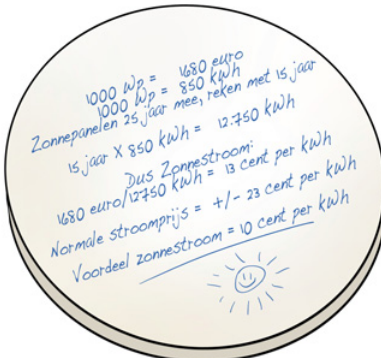 1000 Wp = 1680 euro
1000 Wp = 850 kWh
Zonnepanelen 25 jaar mee, reken met 15 jaar
15 jaar X 850 kWh = 12.750 kWh
Dus Zonnestroom:
1680 euro/12750 kWh = 13 cent per kWh
Normale stroomprijs = +/- 23 cent per kWh
Voordeel zonnestroom = 10 cent per kWh